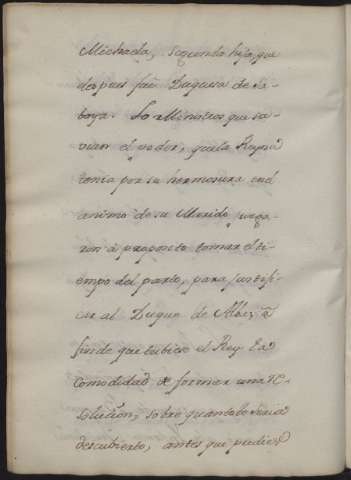 Michaela, segunda hija, que
despues fue Duquesa de Sa-
boya. Los Ministros que sa-
vian el poder, que la Reyna
tenia por su hermosura en el
animo de su Marido, juzga-
ron à proposito tomar el ti-
empo del parto, para sacrifi-
car al Duque de Alba, à
fin de que tubiese el Rey la
comodidad de formar una re-
solucion, sobre quanto le havia
descubierto, antes que pudiese